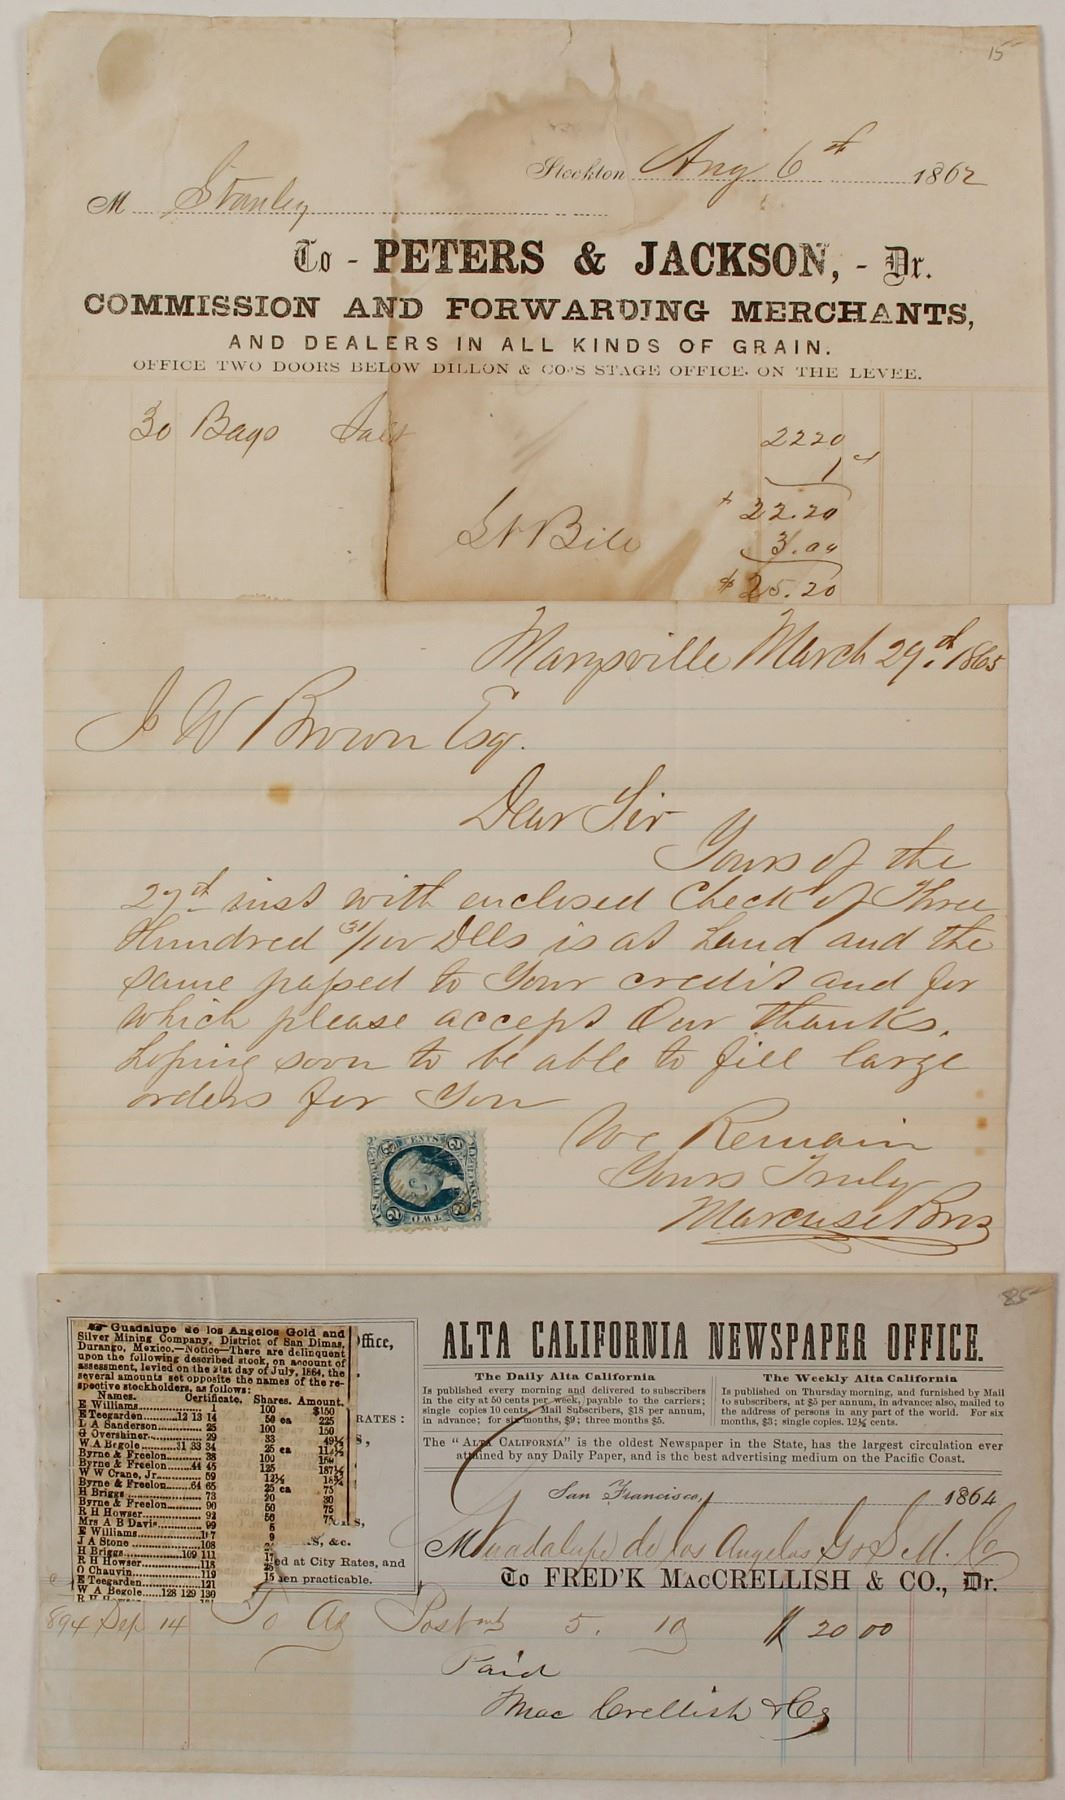 15
Stockton Aug 6th 1862
M Stanley
To - PETERS & JACKSON, - Dr.
COMMISSION AND FORWARDING MERCHANTS,
AND DEALERS IN ALL KINDS OF GRAIN.
OFFICE TWO DOORS BELOW DILLON & CO'S STAGE OFFICE, ON THE LEVEE.
30 Bags Salt 2220
1 ct
22.20
Bill 3.00
$25.20
Marysville March 29th 1865
J W Brown Esq.
Dear Sir
Yours of the
27th inst with enclosed Check of Three
Hundred 31/100 Dlls is at hand and the
same passed to Your credit and for
which please accept Our thanks.
hoping soon to be able to fill large
orders for You
We Remain
Yours Truly
Marcuse Bros
TWO CENTS
85
Guadalupe de los Angelos Gold and
Silver Mining Company, District of San Dimas,
Durango, Mexico.—Notice—There are delinquent
upon the following described stock, on account of
assessment, levied on the 21st day of July, 1864, the
several amounts set opposite the names of the re-
spective stockholders, as follows:
Names. Certificate. Shares. Amount.
E Williams 1 100 $150
E Teegarden 12 13 14 50 ea 225
L A Sanderson 25 100 150
G Overshiner 29 33 49½
W A Begole 31 33 34 25 ea 112½
Byrne & Freelon 38 100 150
Byrne & Freelon 44 45 125 187½
W W Crane, Jr. 59 12½ 18¾
Byrne & Freelon 64 65 25 ea 75
H Briggs 73 20 30
Byrne & Freelon 90 50 75
R H Howser 92 50 75
Mrs A B Davis 99 5
E Williams 107 9
J A Stone 108
H Briggs 109 111
R H Howser 118
O Chauvin 119
E Teegarden 121 15
W A Begole 128 129 130
ffice,
RATES:
&c.
ed at City Rates, and
en practicable.
ALTA CALIFORNIA NEWSPAPER OFFICE.
The Daily Alta California
Is published every morning and delivered to subscribers
in the city at 50 cents per week, payable to the carriers;
single copies 10 cents. Mail Subscribers, $18 per annum,
in advance; for six months, $9; three months $5.
The Weekly Alta California
Is published on Thursday morning, and furnished by Mail
to subscribers, at $5 per annum, in advance; also, mailed to
the address of persons in any part of the world. For six
months, $3; single copies, 12½ cents.
The "ALTA CALIFORNIA" is the oldest Newspaper in the State, has the largest circulation ever
attained by any Daily Paper, and is the best advertising medium on the Pacific Coast.
San Francisco, 1864
M Guadalupe de los Angelos G & S M. Co
To FRED'K MACCRELLISH & CO., Dr.
Sep 14 To Ad 5. $ 20 00
Paid
Mac Crellish & Co